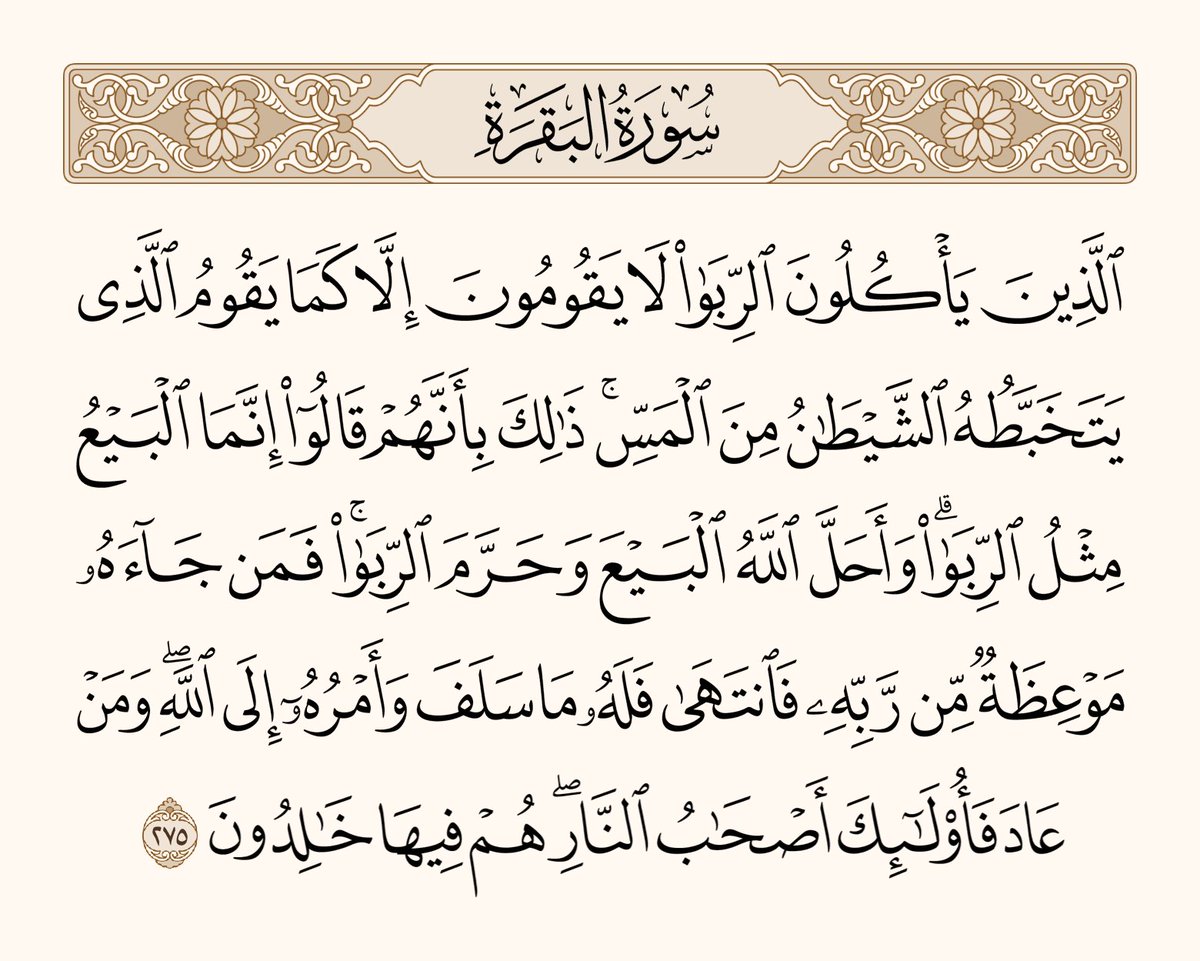 سُورَةُ البَقَرَةِ
ٱلَّذِينَ يَأۡكُلُونَ ٱلرِّبَوٰاْ لَا يَقُومُونَ إِلَّا كَمَا يَقُومُ ٱلَّذِى
يَتَخَبَّطُهُ ٱلشَّيۡطَٰنُ مِنَ ٱلۡمَسِّۚ ذَٰلِكَ بِأَنَّهُمۡ قَالُوٓاْ إِنَّمَا ٱلۡبَيۡعُ
مِثۡلُ ٱلرِّبَوٰاْۗ وَأَحَلَّ ٱللَّهُ ٱلۡبَيۡعَ وَحَرَّمَ ٱلرِّبَوٰاْۚ فَمَن جَآءَهُۥ
مَوۡعِظَةٞ مِّن رَّبِّهِۦ فَٱنتَهَىٰ فَلَهُۥ مَا سَلَفَ وَأَمۡرُهُۥٓ إِلَى ٱللَّهِۖ وَمَنۡ
عَادَ فَأُوْلَٰٓئِكَ أَصۡحَٰبُ ٱلنَّارِۖ هُمۡ فِيهَا خَٰلِدُونَ ٢٧٥